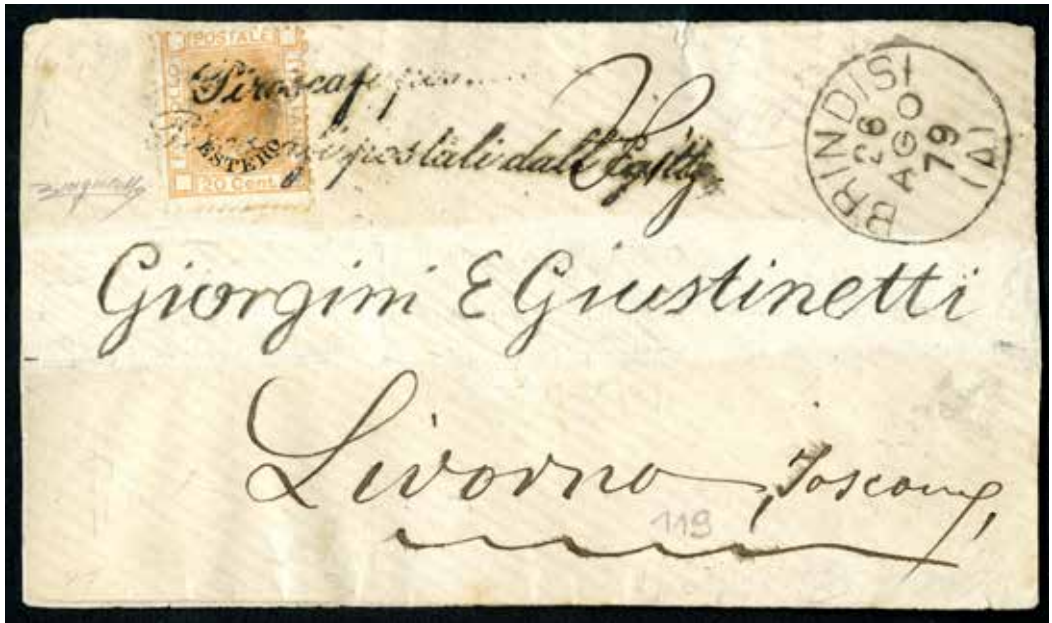 POSTALE
ESTERO
20 Cent.
Piroscafi
postali dall'Egitto
BRINDISI
26
AGO
79
(A)
Giorgini E Giustinetti
Livorno, Toscana,
119